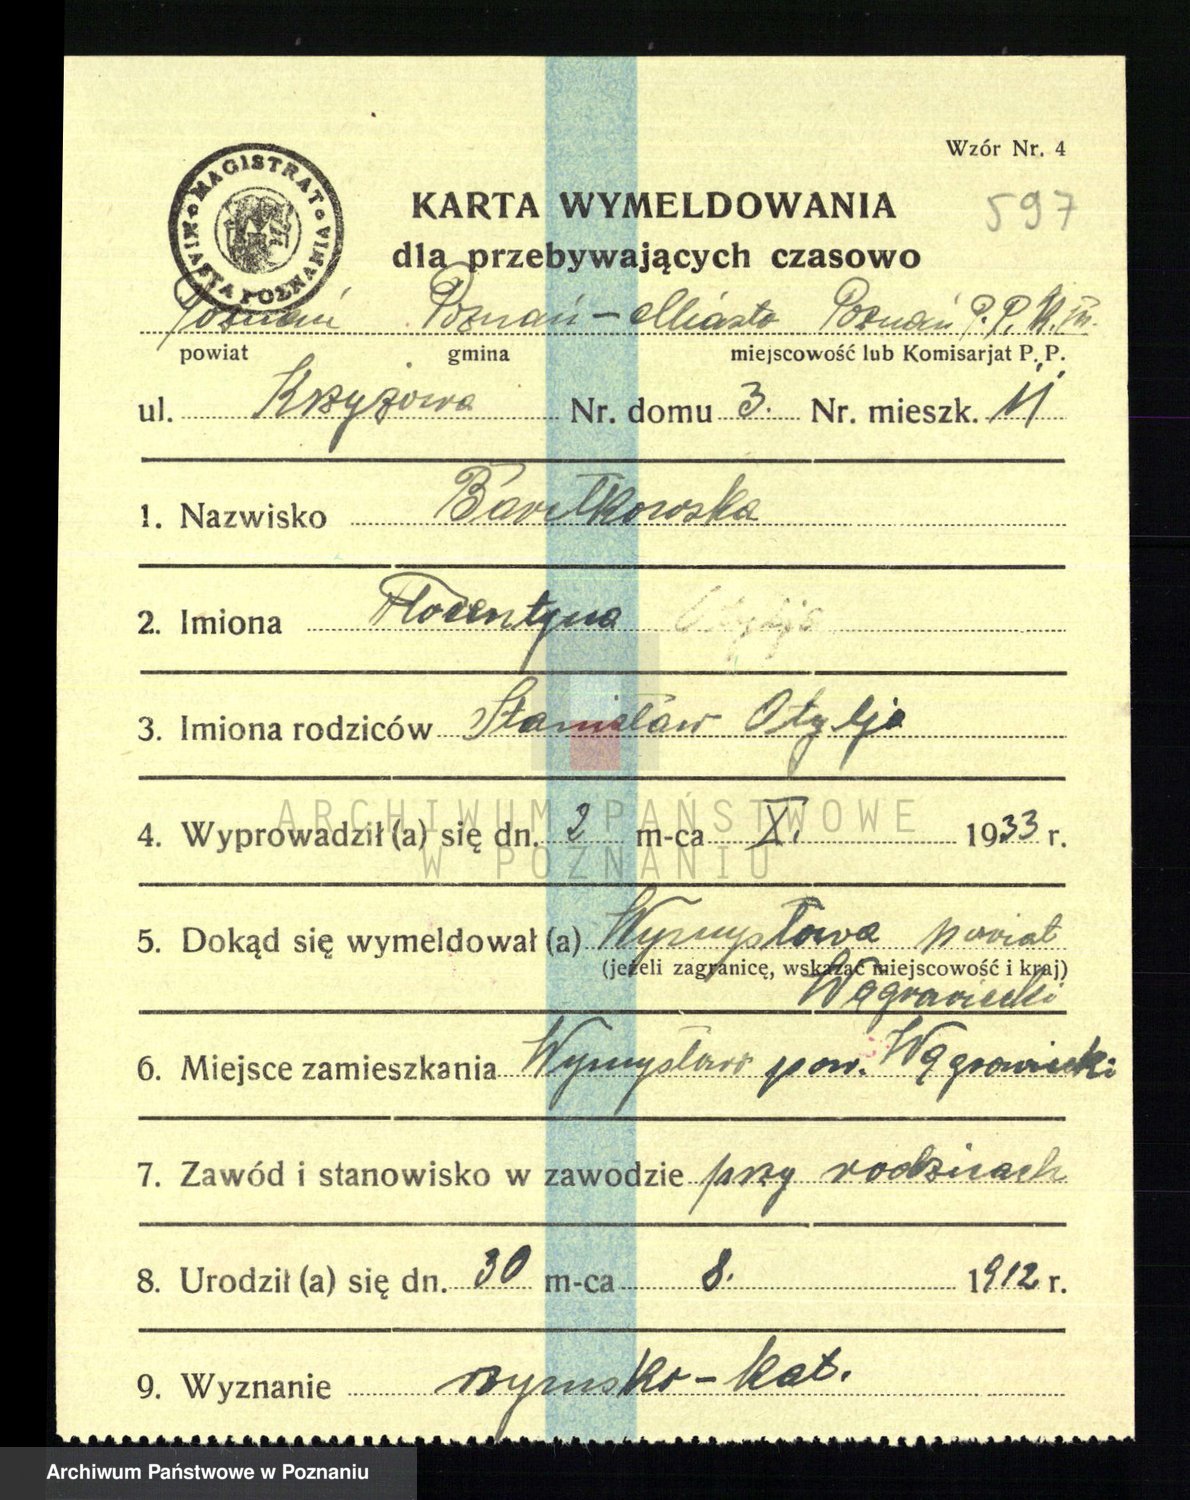 Wzór Nr. 4
MAGISTRAT MIASTA POZNANIA
KARTA WYMELDOWANIA
597
dla przebywających czasowo
Poznań Poznań-Miasto Poznań P.P. K. III.
powiat gmina miejscowość lub Komisarjat P. P.
ul. Krzyżowa Nr. domu 3. Nr. mieszk. 11
1. Nazwisko Bartkowska
2. Imiona Florentyna Otylja
3. Imiona rodziców Stanisław Otylja
ARCHIWUM PAŃSTWOWE
4. Wyprowadził (a) się dn. 2 m-ca X. 1933 r.
W POZNANIU
5. Dokąd się wymeldował (a) Wymysłowa powiat
(jeżeli zagranicę, wskazać miejscowość i kraj)
Wągrowiecki
6. Miejsce zamieszkania Wymysłowo pow. Wągrowiecki
7. Zawód i stanowisko w zawodzie przy rodzicach
8. Urodził (a) się dn. 30 m-ca 8. 1912 r.
9. Wyznanie rzymsko-kat.
Archiwum Państwowe w Poznaniu